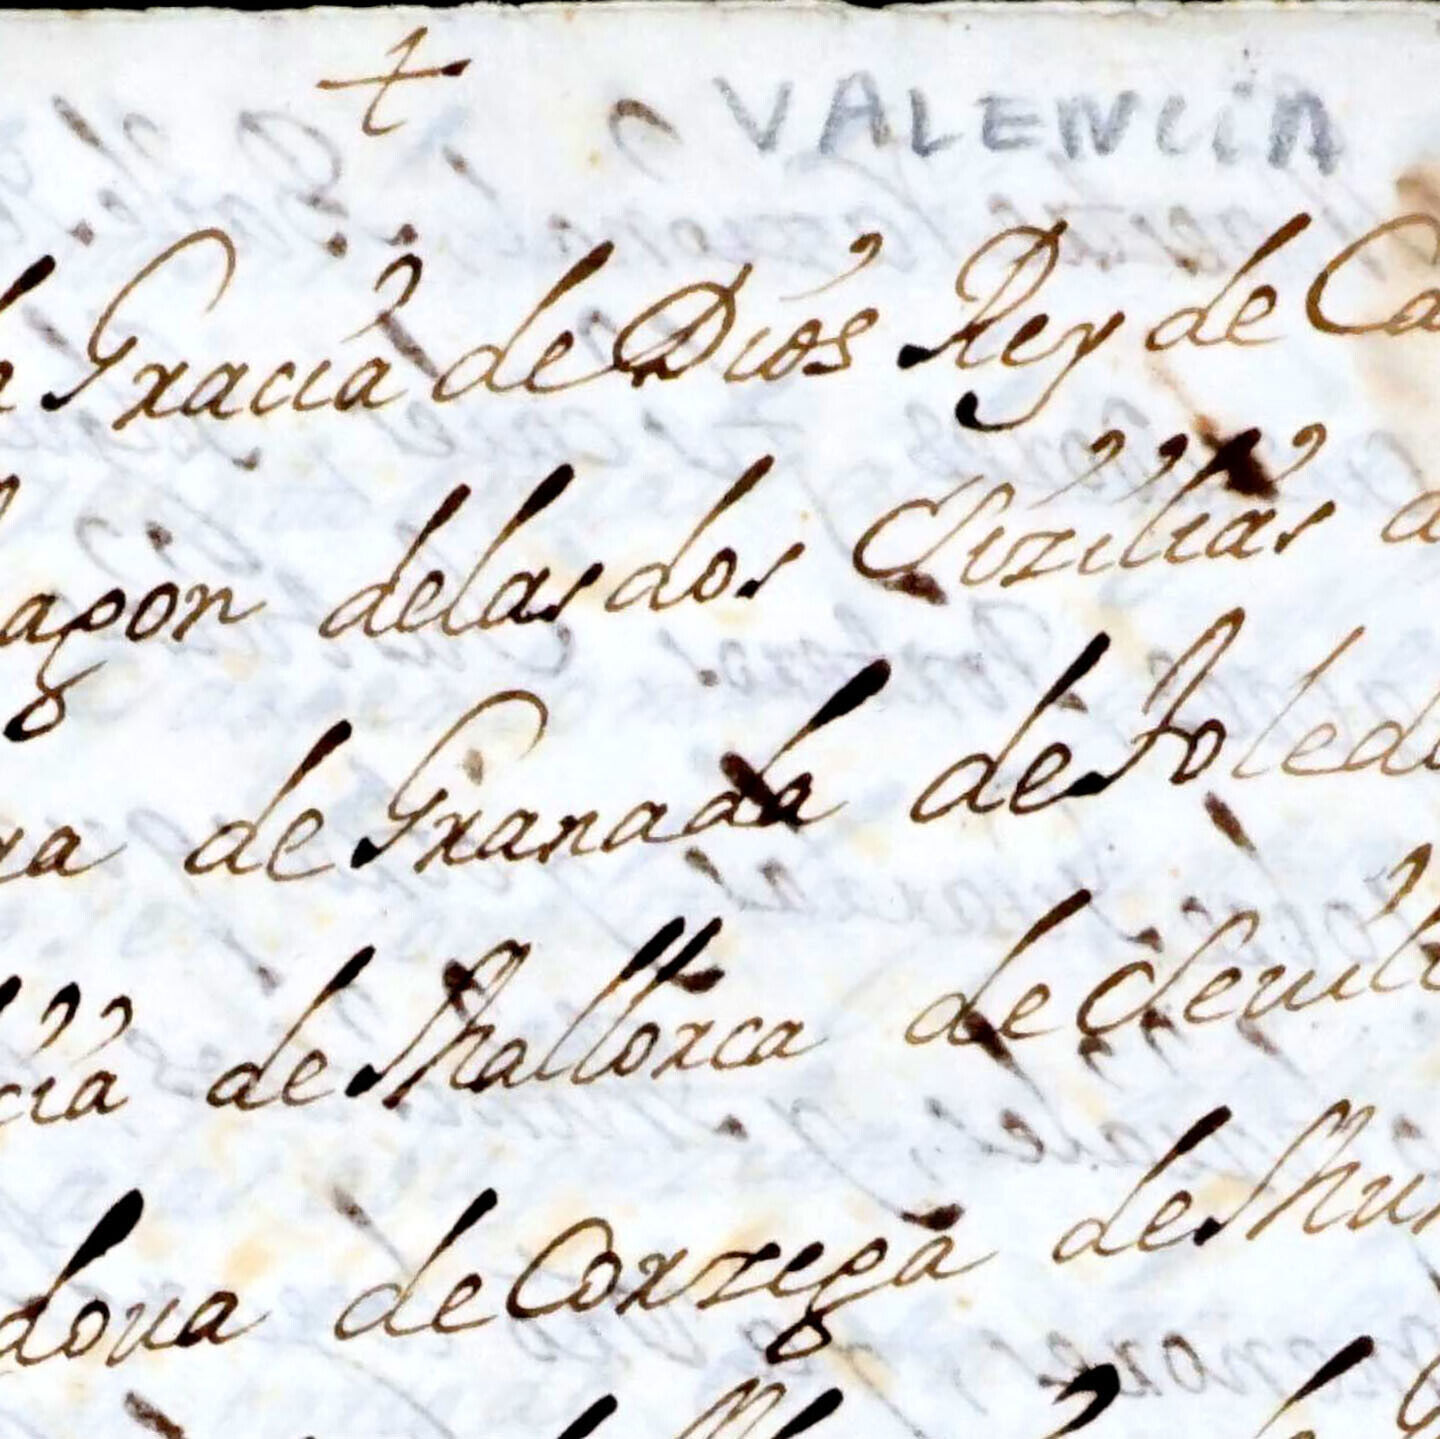 VALENCIA
Gracia de Dios Rey de Ca
agon delas dos Sizilias
ra de Granada de Toledo
cia de Mallorca de Seuill
doua de Corzega de Mur